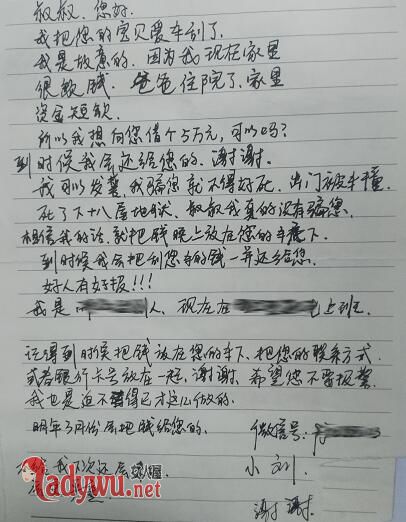 叔叔,您好.
我把您的宝贝爱车刮了,
我是故意的.因为我现在家里
很缺钱.爸爸住院了,家里
资金短缺.
所以我想向您借个5万元,可以吗?
到时候我会还给您的.谢谢.
我可以发誓我骗您就不得好死.出门被车撞.
死了下十八层地狱.叔叔我真的没有骗您.
相信我的话,就把钱晚上放在您的车底下.
到时候我会把刮您车的钱一并还给您.
好人有好报!!!
我是 人,现在在 上班.
记得到时候把钱放在您的车下,把您的联系方式
或者银行卡号放在一起,谢谢,希望您不要报警
我也是迫不得已才这么做的.
明年3月份会把钱给您的. 微信号:
我下次还会 小刘
谢谢.
Jadywu.net